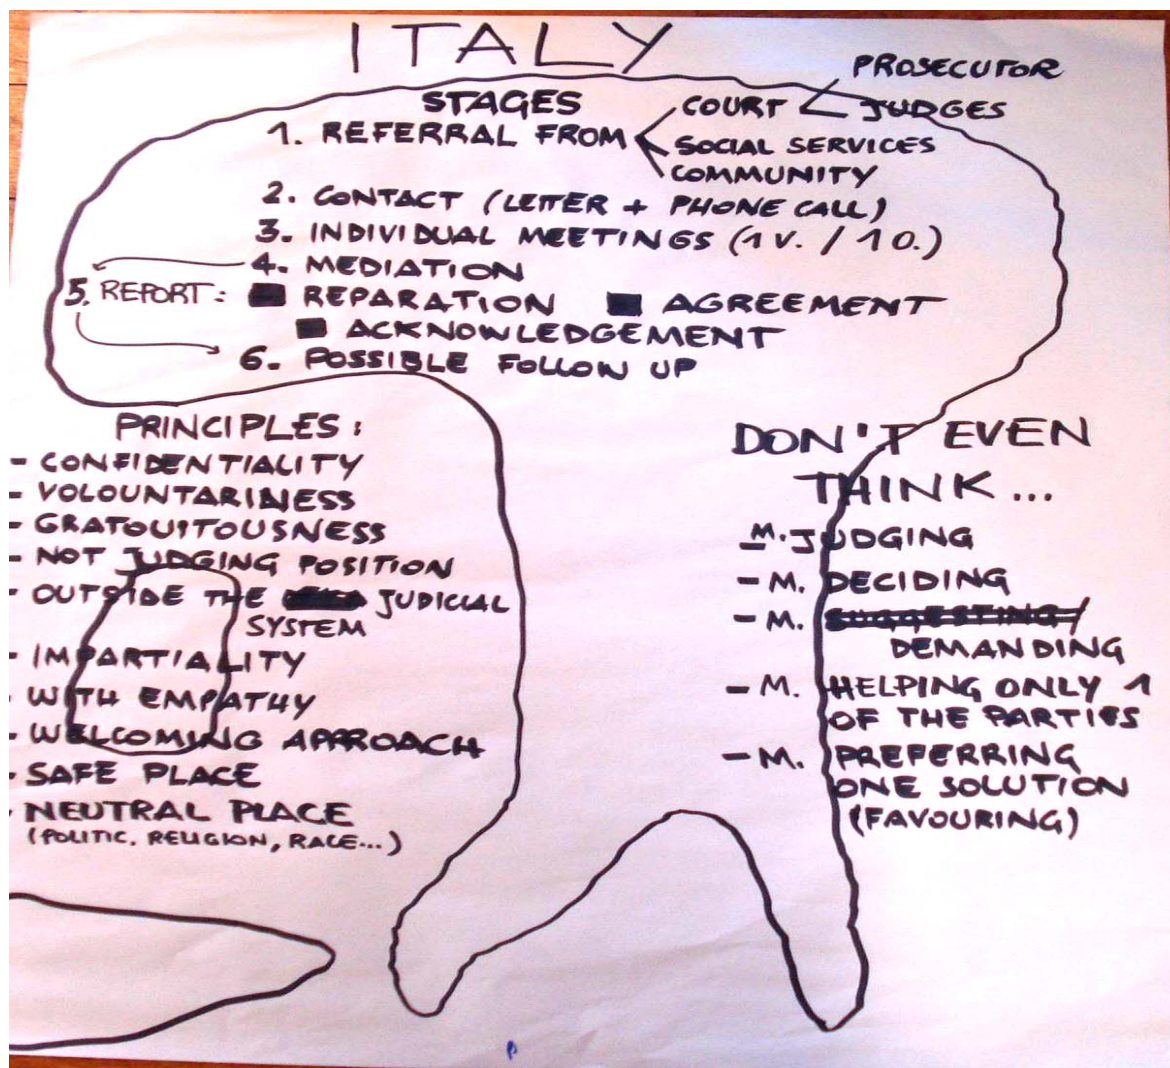 ITALY
STAGES
1. REFERRAL FROM
COURT
PROSECUTOR
JUDGES
SOCIAL SERVICES
COMMUNITY
2. CONTACT (LETTER + PHONE CALL)
3. INDIVIDUAL MEETINGS (1 V. / 1 O.)
4. MEDIATION
5. REPORT: REPARATION AGREEMENT
ACKNOWLEDGEMENT
6. POSSIBLE FOLLOW UP
PRINCIPLES:
- CONFIDENTIALITY
- VOLOUNTARINESS
- GRATOUITOUSNESS
- NOT JUDGING POSITION
- OUTSIDE THE JUDICIAL
SYSTEM
- IMPARTIALITY
- WITH EMPATHY
- WELCOMING APPROACH
- SAFE PLACE
- NEUTRAL PLACE
(POLITIC, RELIGION, RACE...)
DON'T EVEN
THINK...
- M. JUDGING
- M. DECIDING
- M. SUGGESTING/
DEMANDING
- M. HELPING ONLY 1
OF THE PARTIES
- M. PREFERRING
ONE SOLUTION
(FAVOURING)